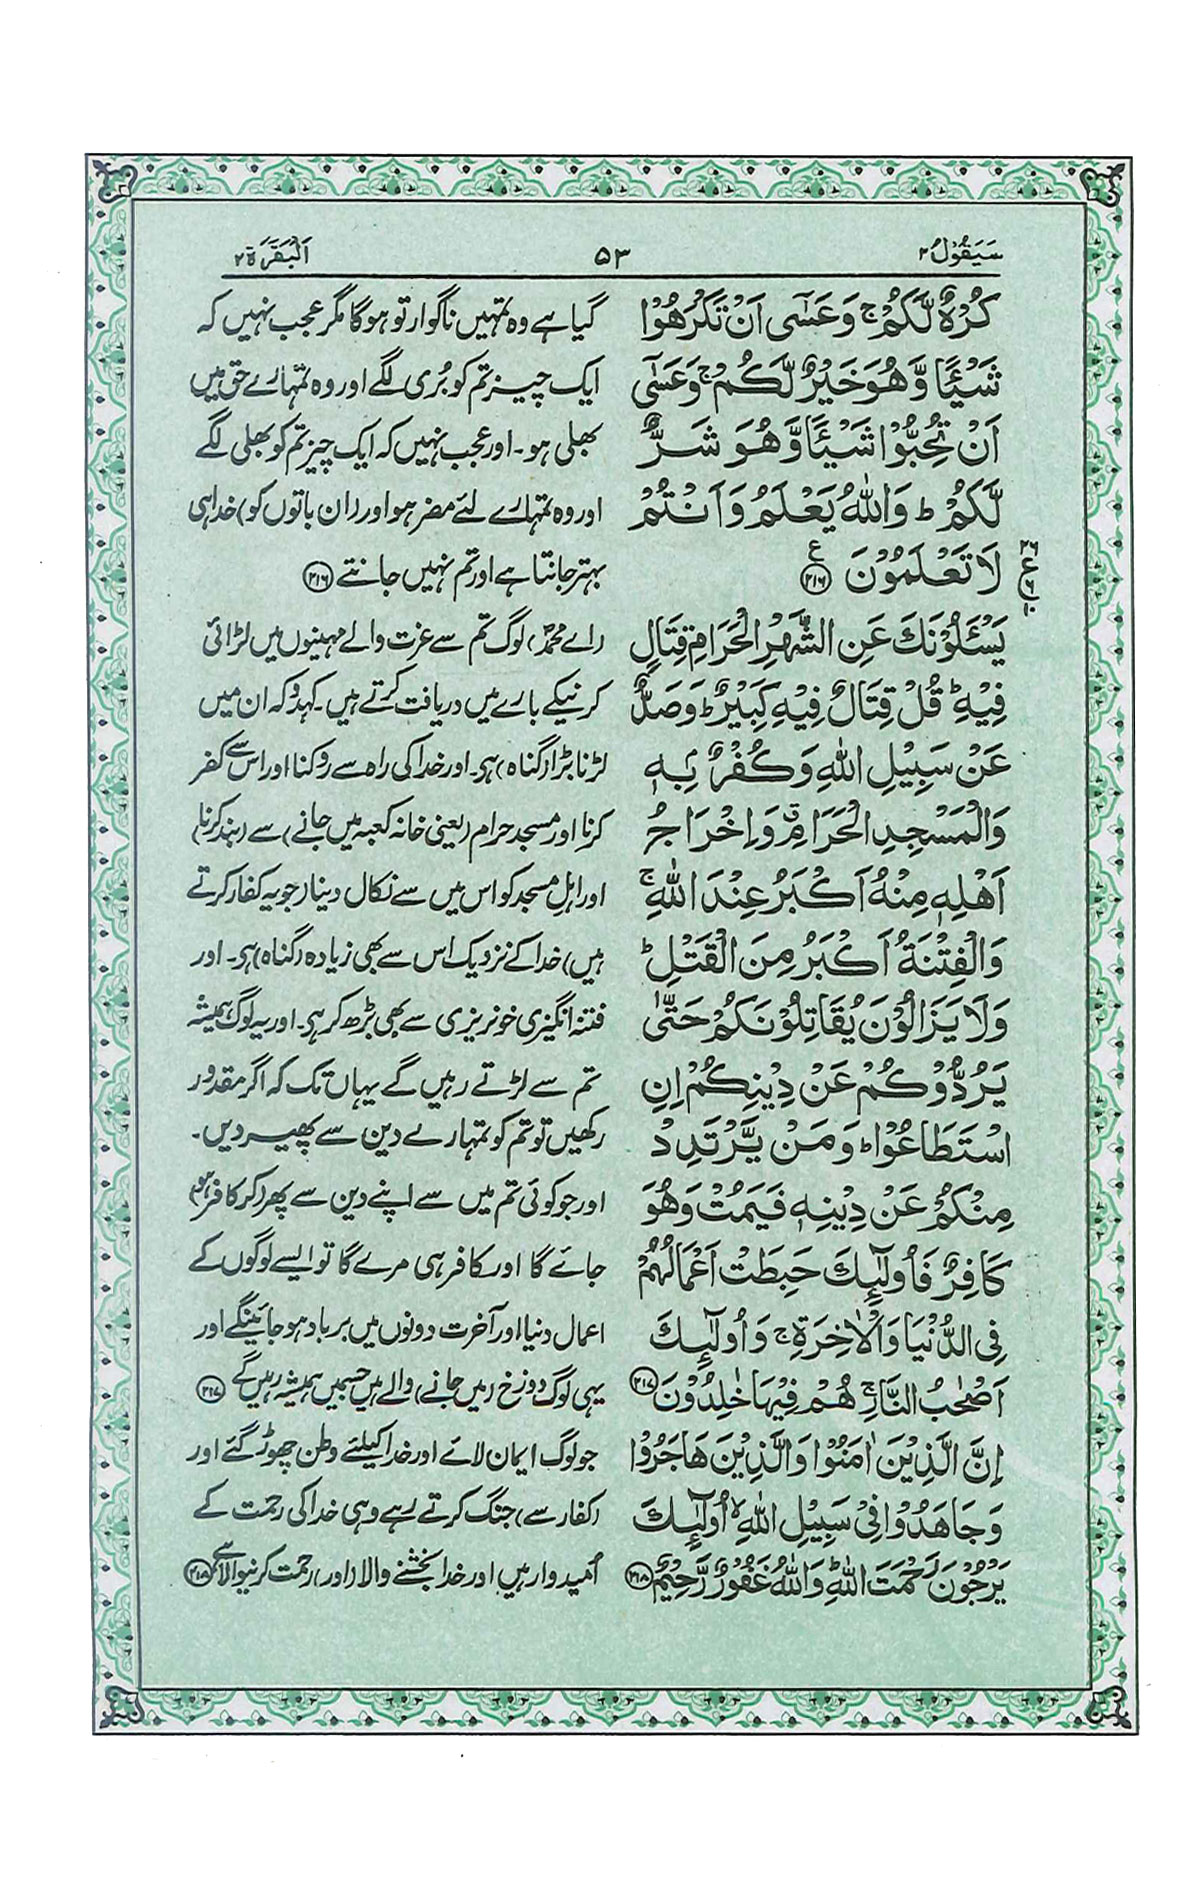 سَيَقُوْلُ ٢
٥٣
اَلْبَقَرَة ٢
كُرْهٌ لَّكُمْ ۚ وَعَسٰۤى اَنْ تَكْرَهُوْا
شَيْـًٔا وَّهُوَ خَيْرٌ لَّكُمْ ۚ وَعَسٰۤى
اَنْ تُحِبُّوْا شَيْـًٔا وَّهُوَ شَرٌّ
لَّكُمْ ؕ وَاللّٰهُ يَعْلَمُ وَاَنْتُمْ
لَا تَعْلَمُوْنَ ﴿٢١٦﴾ ع
يَسْـَٔلُوْنَكَ عَنِ الشَّهْرِ الْحَرَامِ قِتَالٍ
فِيْهِ ؕ قُلْ قِتَالٌ فِيْهِ كَبِيْرٌ ؕ وَصَدٌّ
عَنْ سَبِيْلِ اللّٰهِ وَكُفْرٌۢ بِهٖ
وَالْمَسْجِدِ الْحَرَامِ ۗ وَاِخْرَاجُ
اَهْلِهٖ مِنْهُ اَكْبَرُ عِنْدَ اللّٰهِ ۚ
وَالْفِتْنَةُ اَكْبَرُ مِنَ الْقَتْلِ ؕ
وَلَا يَزَالُوْنَ يُقَاتِلُوْنَكُمْ حَتّٰى
يَرُدُّوْكُمْ عَنْ دِيْنِكُمْ اِنِ
اسْتَطَاعُوْا ؕ وَمَنْ يَّرْتَدِدْ
مِنْكُمْ عَنْ دِيْنِهٖ فَيَمُتْ وَهُوَ
كَافِرٌ فَاُولٰٓئِكَ حَبِطَتْ اَعْمَالُهُمْ
فِى الدُّنْيَا وَالْاٰخِرَةِ ۚ وَاُولٰٓئِكَ
اَصْحٰبُ النَّارِ ۚ هُمْ فِيْهَا خٰلِدُوْنَ ﴿٢١٧﴾
اِنَّ الَّذِيْنَ اٰمَنُوْا وَالَّذِيْنَ هَاجَرُوْا
وَجَاهَدُوْا فِىْ سَبِيْلِ اللّٰهِ ۙ اُولٰٓئِكَ
يَرْجُوْنَ رَحْمَتَ اللّٰهِ ؕ وَاللّٰهُ غَفُوْرٌ رَّحِيْمٌ ﴿٢١٨﴾
گیا ہے وہ تمہیں ناگوار تو ہوگا مگر عجب نہیں کہ
ایک چیز تم کو بُری لگے اور وہ تمہارے حق میں
بھلی ہو۔ اور عجب نہیں کہ ایک چیز تم کو بھلی لگے
اور وہ تمہارے لئے مضر ہو اور (ان باتوں کو) خدا ہی
بہتر جانتا ہے اور تم نہیں جانتے ﴿۲۱۶﴾
(اے محمدؐ) لوگ تم سے عزت والے مہینوں میں لڑائی
کرنیکے بارے میں دریافت کرتے ہیں۔ کہدو کہ ان میں
لڑنا بڑا (گناہ) ہی۔ اور خدا کی راہ سے روکنا اور اس سے کفر
کرنا اور مسجد حرام (یعنی خانہ کعبہ میں جانے) سے (بند کرنا)
اور اہلِ مسجد کو اس میں سے نکال دینا (جو یہ کفار کرتے
ہیں) خدا کے نزدیک اس سے بھی زیادہ (گناہ) ہی۔ اور
فتنہ انگیزی خونریزی سے بھی بڑھ کر ہی۔ اور یہ لوگ ہمیشہ
تم سے لڑتے رہیں گے یہاں تک کہ اگر مقدور
رکھیں تو تم کو تمہارے دین سے پھیر دیں۔
اور جو کوئی تم میں سے اپنے دین سے پھر (کر کافر ہو)
جائے گا اور کافر ہی مرے گا تو ایسے لوگوں کے
اعمال دنیا اور آخرت دونوں میں برباد ہو جائینگے اور
یہی لوگ دوزخ (میں جانے) والے ہیں جسمیں ہمیشہ رہیں گے ﴿۲۱۷﴾
جو لوگ ایمان لائے اور خدا کیلئے وطن چھوڑ گئے اور
(کفار سے) جنگ کرتے رہے وہی خدا کی رحمت کے
اُمیدوار ہیں اور خدا بخشنے والا (اور) رحمت کرنیوالا ہے ﴿۲۱۸﴾